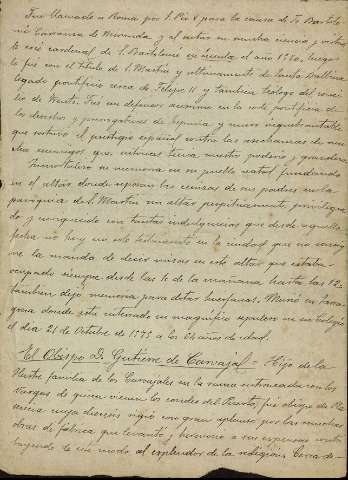 Fue llamado a Roma por S. Pio V para la causa de Fr Bartolo
mé Carranza de Miranda, y al notar su mucha ciencia y virtud
le creó cardenal de S. Bartolomé in insula el año 1570, luego
lo fué con el título de S. Martin y ultimamente de Santa Balbina
legado pontificio cerca de Felipe II y tambien teólogo del conci-
lio de Trento. Fue un defensor acerrimo en la corte pontificia de
los derechos y prerogativas de España y muro inquebrantable
que sostuvo el prestigio español contra las asechanzas de mu-
chos enemigos que entonces tenia nuestro poderio y grandeza.
Inmortalizó su memoria en su pueblo natal fundando
en el altar donde reposan las cenizas de sus padres en la
parroquia de S. Martin un altar perpetuamente privilegia
do y enriquecido con tantas indulgencias que desde aquella
fecha no hay un solo testamento en la ciudad que no consig
ne la manda de decir misas en este altar que estaba
ocupado siempre desde las 4 de la mañana hasta las 12,
tambien dejó memoria para dotar huerfanas. Murió en Tarra
gona donde esta enterrado en magnifico sepulcro en su colegio
el dia 21 de Octubre de 1575 a los 64 años de edad.
El Obispo D. Gutierre de Carvajal = Hijo de la
Ilustre familia de los Carvajales en la rama entroncada con los
Vargas de quien vienen los condes del Puerto, fue obispo de Pla
sencia cuya diocesis rigió con gran aplauso por las muchas
obras de fábrica que levantó y hermoseó a sus expensas contri
buyendo de un modo al esplendor de la religion. Cerca de